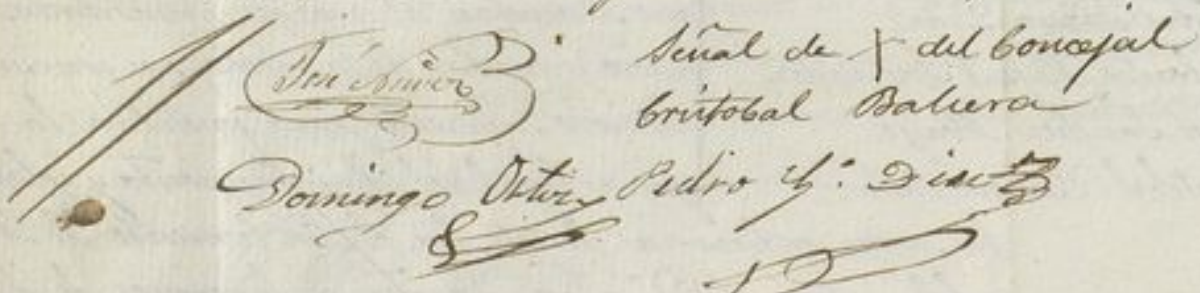 José Núñez
Señal de + del Concejal
Cristobal Balsera
Domingo Ortiz Pedro Y.º Diaz